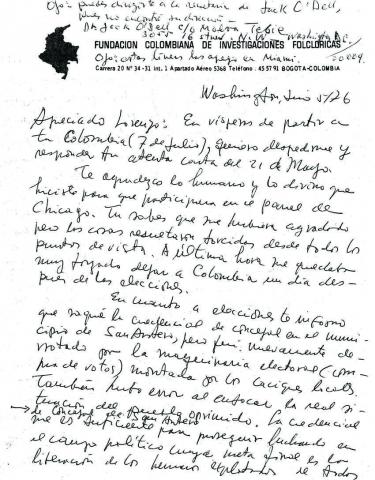 Ojo: puedes dirigirte a la residencia de Jack O'Dell,
pues no encontré su dirección —
Dr. Jack O'Dell c/o Malva
3055 16 Street N.W. Washington D.C.
FUNDACION COLOMBIANA DE INVESTIGACIONES FOLCLORICAS
Ojo: estas líneas las agrego en Miami.
Carrera 20 Nº 34-31 int. 1 Apartado Aéreo 5368 Teléfono 45 57 91 BOGOTA-COLOMBIA
Washington, 5/26
Apreciado Lorenzo: En vísperas de partir a
tu Colombia (7 de Julio), quiero despedirme y
responder tu atenta carta del 21 de Mayo.
Te agradezco lo humano y lo divino que
hiciste para que participara en el panel de
Chicago. Tu sabes que me hubiera agradado
pero las cosas resultaron torcidas desde todos los
puntos de vista. A última hora me quedaba
muy forzado dejar a Colombia un día des-
pués de las elecciones.
En cuanto a elecciones te informo
que saqué la credencial de concejal en el muni-
cipio de San Antero, pero fui nuevamente de-
rrotado por la maquinaria electoral (com-
pra de votos) montada por los caciques locales.
También hubo error al enfocar la real si-
tuación del pueblo oprimido. La credencial
de Concejal de San Antero
me es suficiente para proseguir luchando en
el campo político cuya meta final es la
liberación de los humanos explotados de todos